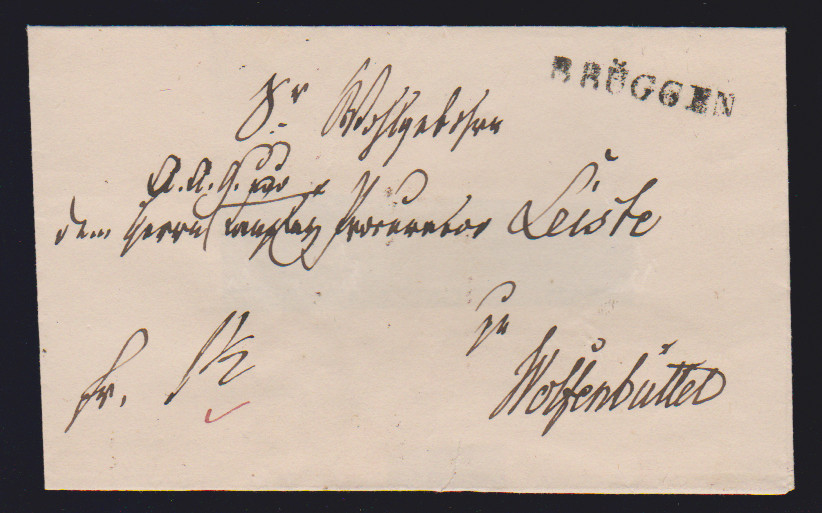 BRÜGGEN
Sr Wohlgebohren
A. A. G. und
dem Herrn Canzley Procurator Leiste
zu
Wolfenbüttel
fr.